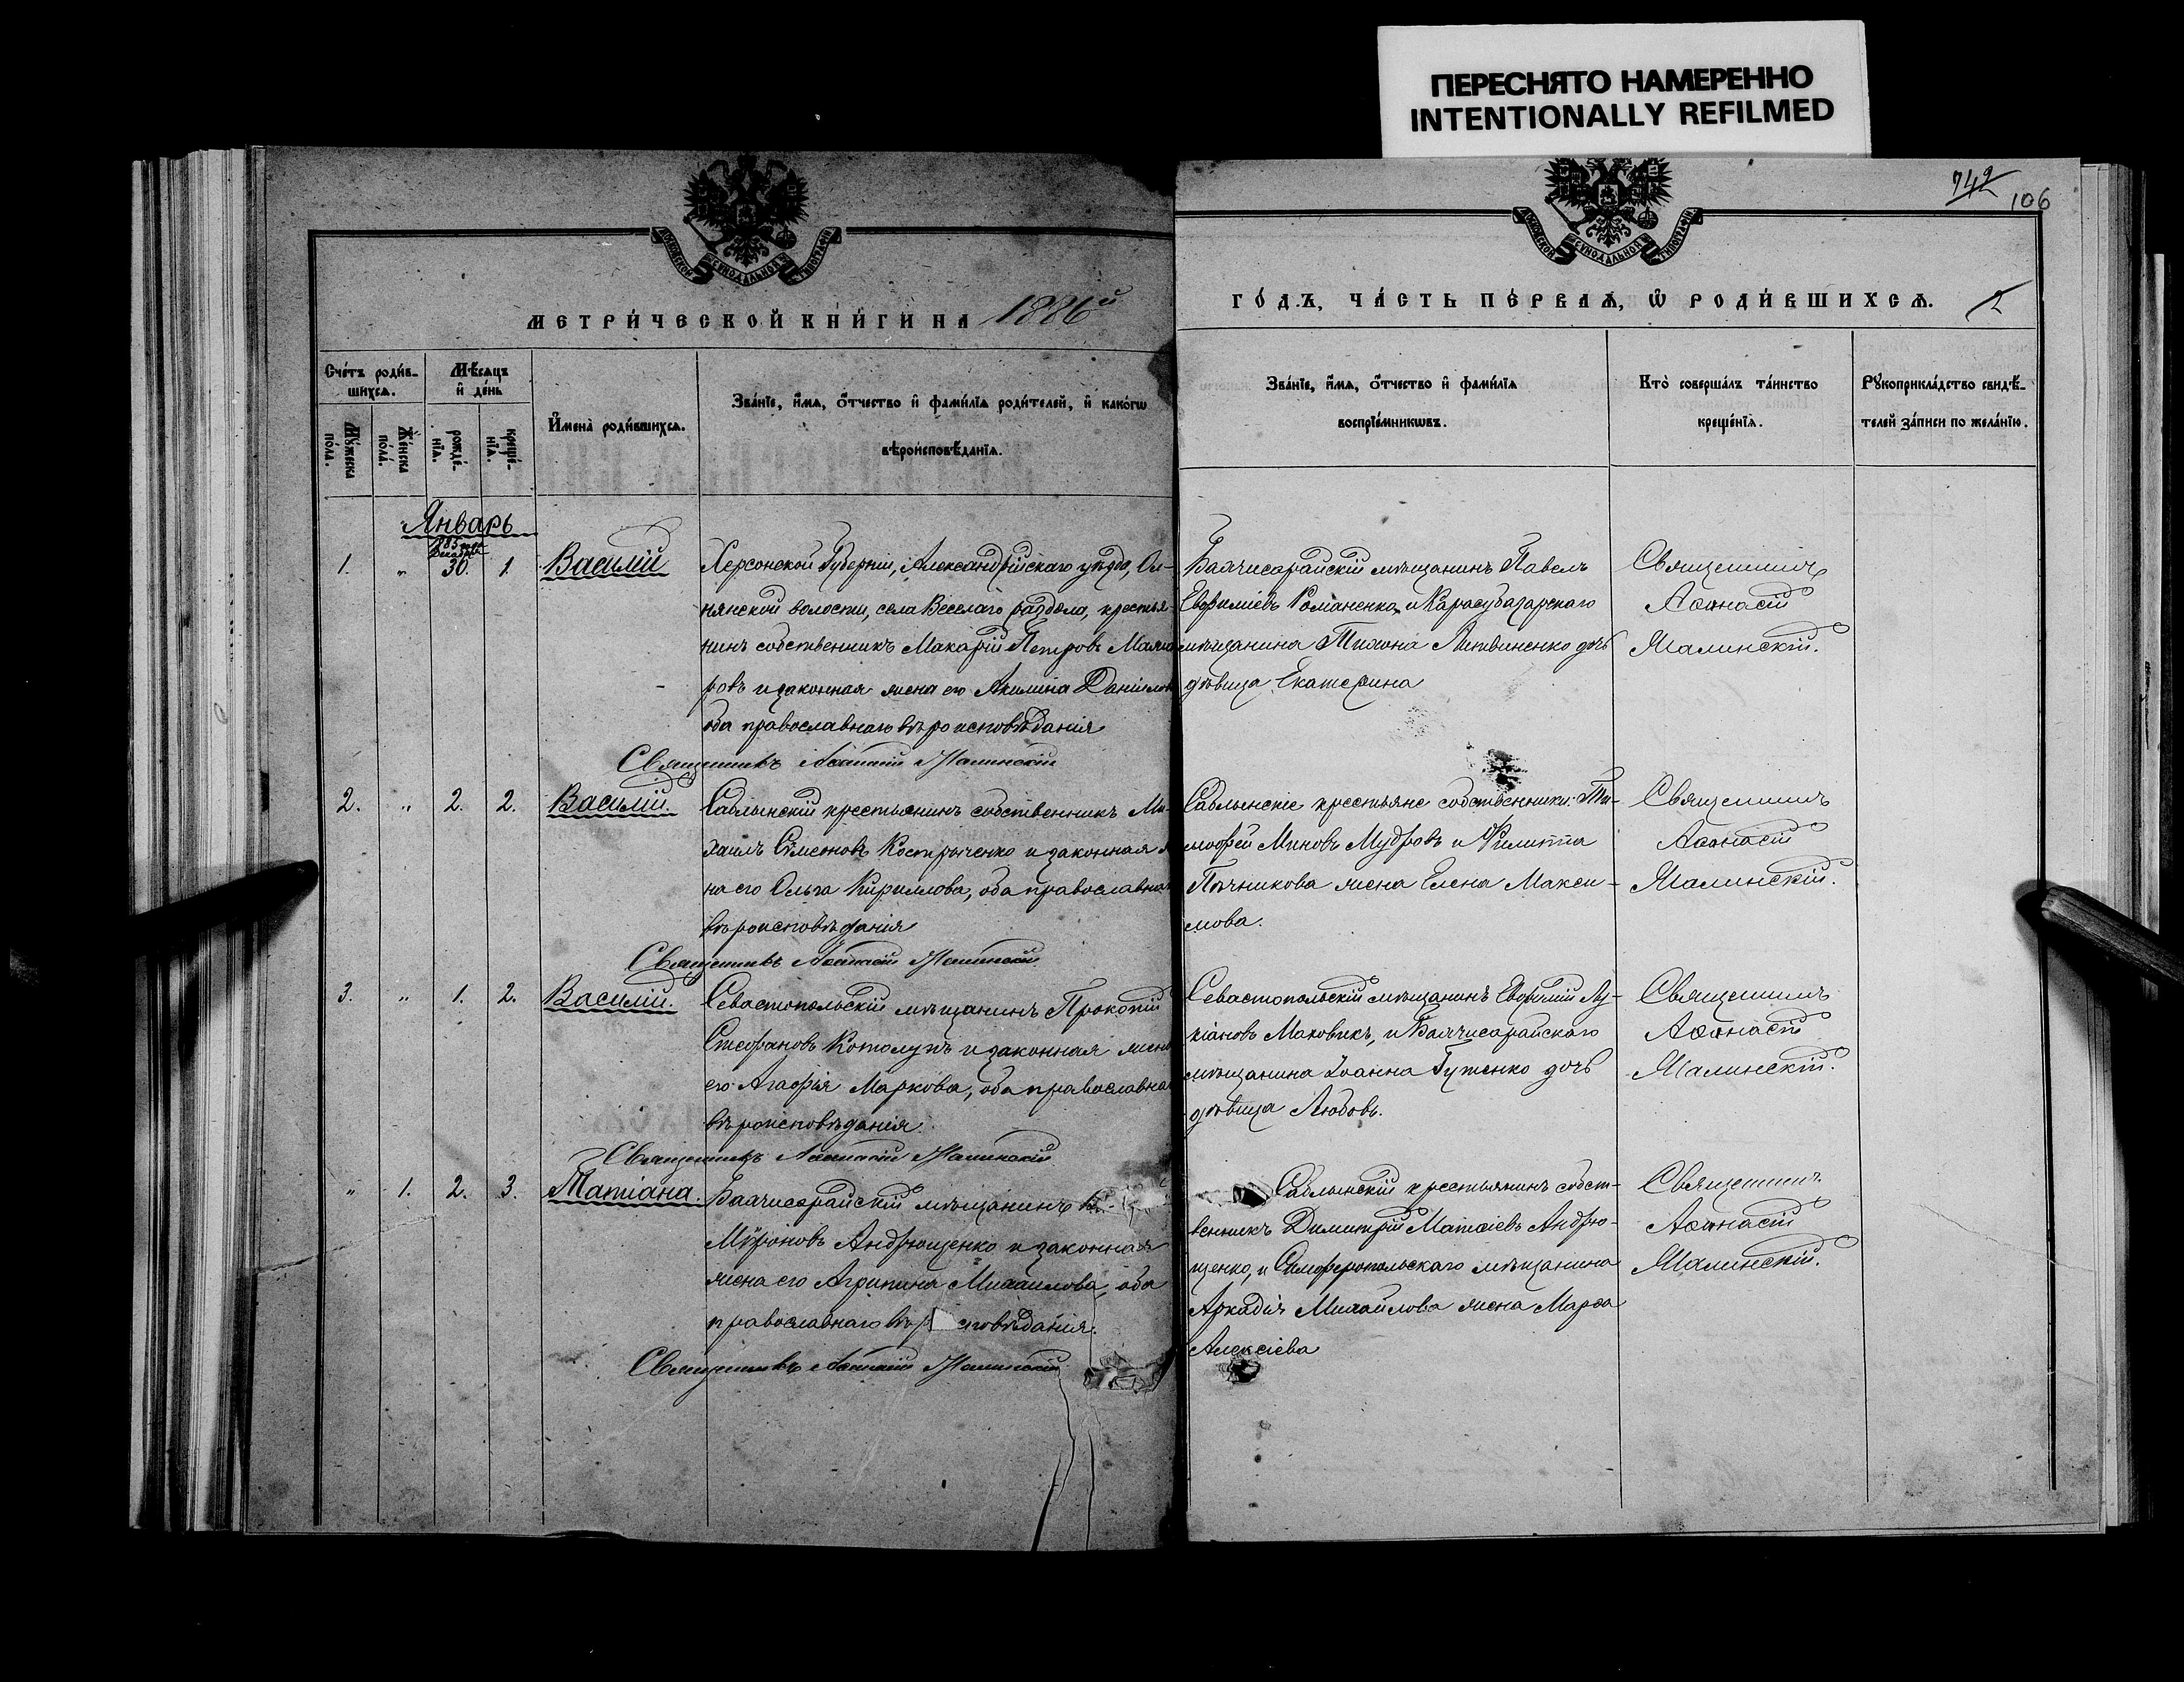 ПЕРЕСНЯТО НАМЕРЕННО
INTENTIONALLY REFILMED
742
106
МОСКОВСКОЙ СУНОДАЛЬНОЙ ТИПОГРАФІИ
МОСКОВСКОЙ СУНОДАЛЬНОЙ ТИПОГРАФІИ
МЕТРИ́ЧЕСКОЙ КНИ́ГИ НА 1886й
ГО́ДЪ, ЧА́СТЬ ПЕ́РВАѦ, Ѡ РОДИ́ВШИХСѦ. 2
Сче́тъ роди́в-
шихсѧ.
Мѣ́сѧцъ
и҆ де́нь
Мꙋ́жеска
по́ла.
Же́нска
по́ла.
рожде́-
нїѧ.
креще́-
нїѧ.
И҆мена̀ роди́вшихсѧ.
Зва́нїе, и҆́мѧ, ѻ҆́тчество и҆ фами́лїѧ роди́телей, и҆ како́гѡ
вѣроисповѣ́данїѧ.
Зва́нїе, и҆́мѧ, ѻ҆́тчество и҆ фами́лїѧ
воспрїе́мникѡвъ.
Кто̀ соверша́лъ та́инство
креще́нїѧ.
Рꙋкоприкла́дство свидѣ́-
телей за́писи по жела́нїю.
Январь
885 года
Декабрь
1. " 30. 1. Василій
Херсонской Губерніи, Александрійскаго уѣзда,
нянской волости, села Веселаго раздола, крестья-
нинъ собственникъ Макарій Петровъ
ровъ и законная жена его Акилина Даніилов
оба православнаго вѣроисповѣданія
Священникъ Аѳанасій Малинскій
Бахчисарайскій мѣщанинъ Павелъ
Евфиміевъ Романенко, и Карасубазарскаго
мѣщанина Тихона Литвиненко дочь
дѣвица Екатерина
Священникъ
Аѳанасій
Малинскій.
2. " 2. 2. Василій.
Саблынскій крестьянинъ собственникъ Ми-
хаилъ Сѵмеоновъ Костриченко и законная
на его Ольга Кириллова, оба православна
вѣроисповѣданія
Священникъ Аѳанасій Малинскій
Саблынскіе крестьяне собственники: Ти-
моѳей Миновъ Мудровъ и Филиппа
Пѣчникова жена Елена Макси-
мова.
Священникъ
Аѳанасій
Малинскій.
3. " 1. 2. Василій.
Севастопольскій мѣщанинъ Прокопій
Стефановъ Котолупъ и законная жена
его Агаѳія Маркова, оба православна
вѣроисповѣданія.
Священникъ Аѳанасій Малинскій
Севастопольскій мѣщанинъ Евфимій Лу-
кіановъ Маковикъ, и Бахчисарайскаго
мѣщанина Іоанна Гутенко дочь
дѣвица Любовь.
Священникъ
Аѳанасій
Малинскій.
" 1. 2. 3. Татіана.
Бахчисарайскій мѣщанинъ
Мѵроновъ Андрющенко и законная
жена его Агрипина Михаилова, оба
православнаго вѣр исповѣданія.
Священникъ Аѳанасій Малинскій
Саблынскій крестьянинъ собст-
венникъ Димитрій Матѳіевъ Андрю-
щенко, и Симферопольскаго мѣщанина
Аркадія Михайлова жена Марѳа
Алексіева
Священникъ
Аѳанасій
Малинскій.